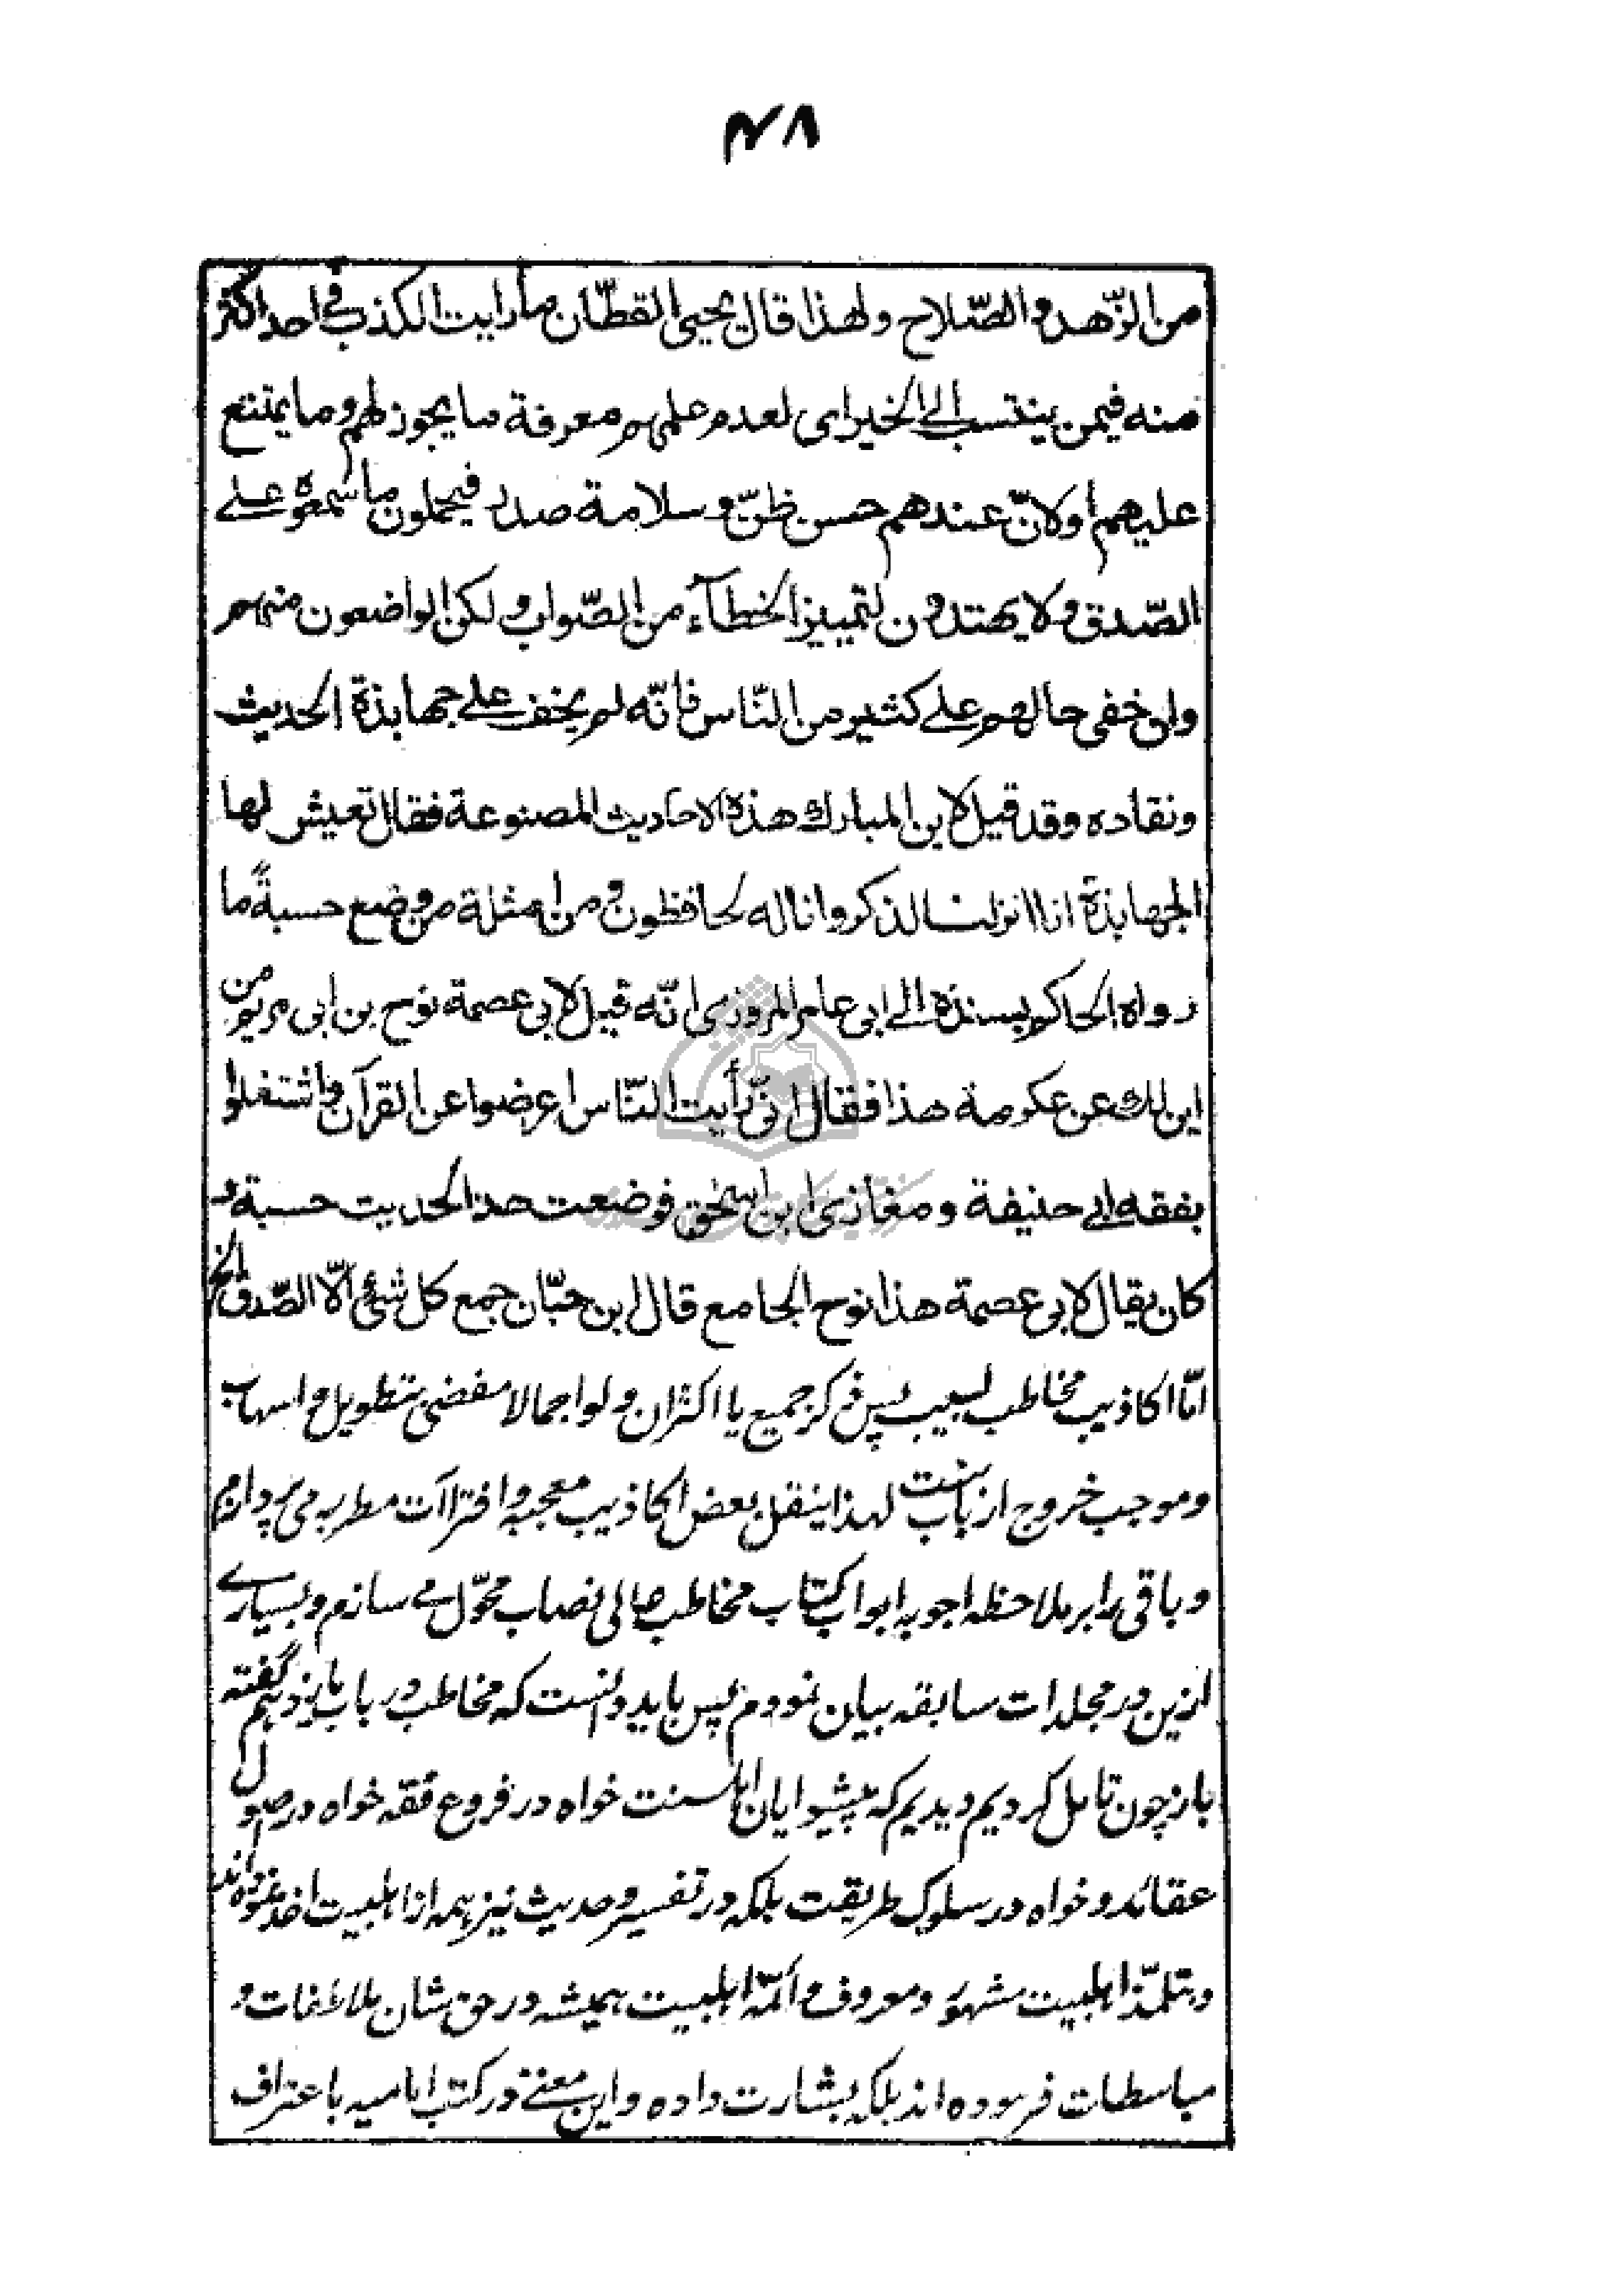 ۴۸
من الزّهد و الصّلاح ولهذا قال يحيى القطّان ما رايت الكذب في احد اكثر
منه فيمن ينتسب الى الخير اى لعدم علمهم معرفة ما يجوز لهم وما يمتنع
عليهم او لانّ عندهم حسن ظنّ و سلامة صدر فيحملون ما سمعوه على
الصّدق و لا يهتدون لتمييز الخطآء من الصّواب و لكن الواضعون منهم
وان خفى حالهم على كثير من النّاس فانّه لم يخف على جهابذة الحديث
ونقاده وقد قيل لابن المبارك هذه الاحاديث المصنوعة فقال تعيش لها
الجهابذة انا نزلنا الذكر وانا له لحافظون و من امثلة من وضع حسبةً ما
رواه الحاكم بسنده الى ابى عامر المروزى انّه قيل لابى عصمة نوح بن ابى مريم من
اين لك عن عكرمة هذا فقال انّى رأيت النّاس اعرضوا عن القرآن و اشتغلوا
بفقه ابى حنيفة و مغازى ابن اسحق فوضعت هذا الحديث حسبة و
كان يقال لابى عصمة هذا نوح الجامع قال ابن حبّان جمع كل شئ الّا الصّدق الخ
امّا اكاذيب مخاطب لبيب پس ذكر جميع يا اكثر ان ولو اجمالا مفضى بتطويل و اسهاب
وموجب خروج از باب ست لهذا بنقل بعض اكاذيب معجبه و افتراآت مطربه مى پردازيم
و باقى را بر ملاحظه اجوبه ابواب كتاب مخاطب عالى نصاب محوّل مے سازم و بسيارے
ازين در مجلدات سابقه بيان نمودم پس بايد دانست كه مخاطب در باب يازدهم گفته
باز چون تامل كرديم ديديم كه پيشوايان اهلسنت خواه در فروع فقه خواه در اصول
عقائد و خواه در سلوك طريقت بلكه در تفسير و حديث نيز همه از اهلبيت اخذ نموده اند
و بتلمّذ اهلبيت مشهور و معروف و ائمّه اهلبيت هميشه در حق شان ملاطفات و
مباسطات فرموده اند بلكه بشارت داده و اين معنے در كتب اماميه با عتراف